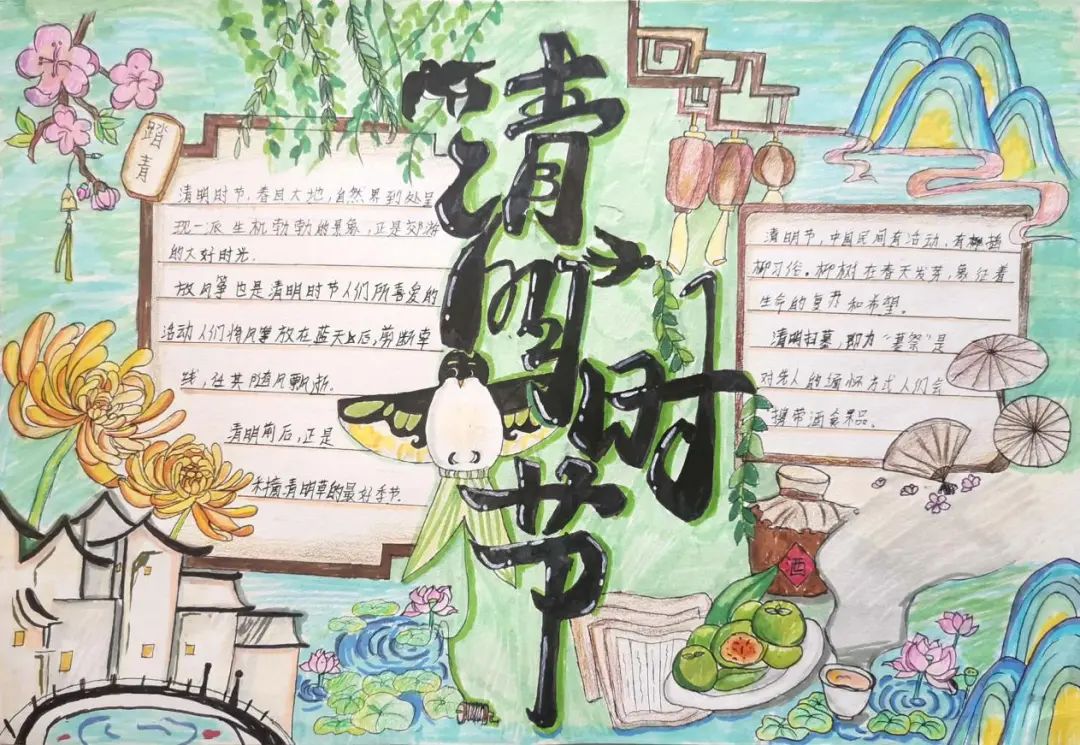 清明时节
踏青
清明时节，春回大地，自然界到处呈
现一派生机勃勃的景象，正是郊游
的大好时光.
放风筝也是清明时节人们所喜爱的
活动人们将风筝放在蓝天上后，剪断牵
线，任其随风飘
清明前后，正是
采摘清明草的最好季节.
清明节，中国民间有活动，有柳插
柳习俗。柳树在春天发芽，象征着
生命的复苏和希望。
清明扫墓，即为“墓祭”是
对先人的缅怀方式人们会
携带酒食果品。
酒